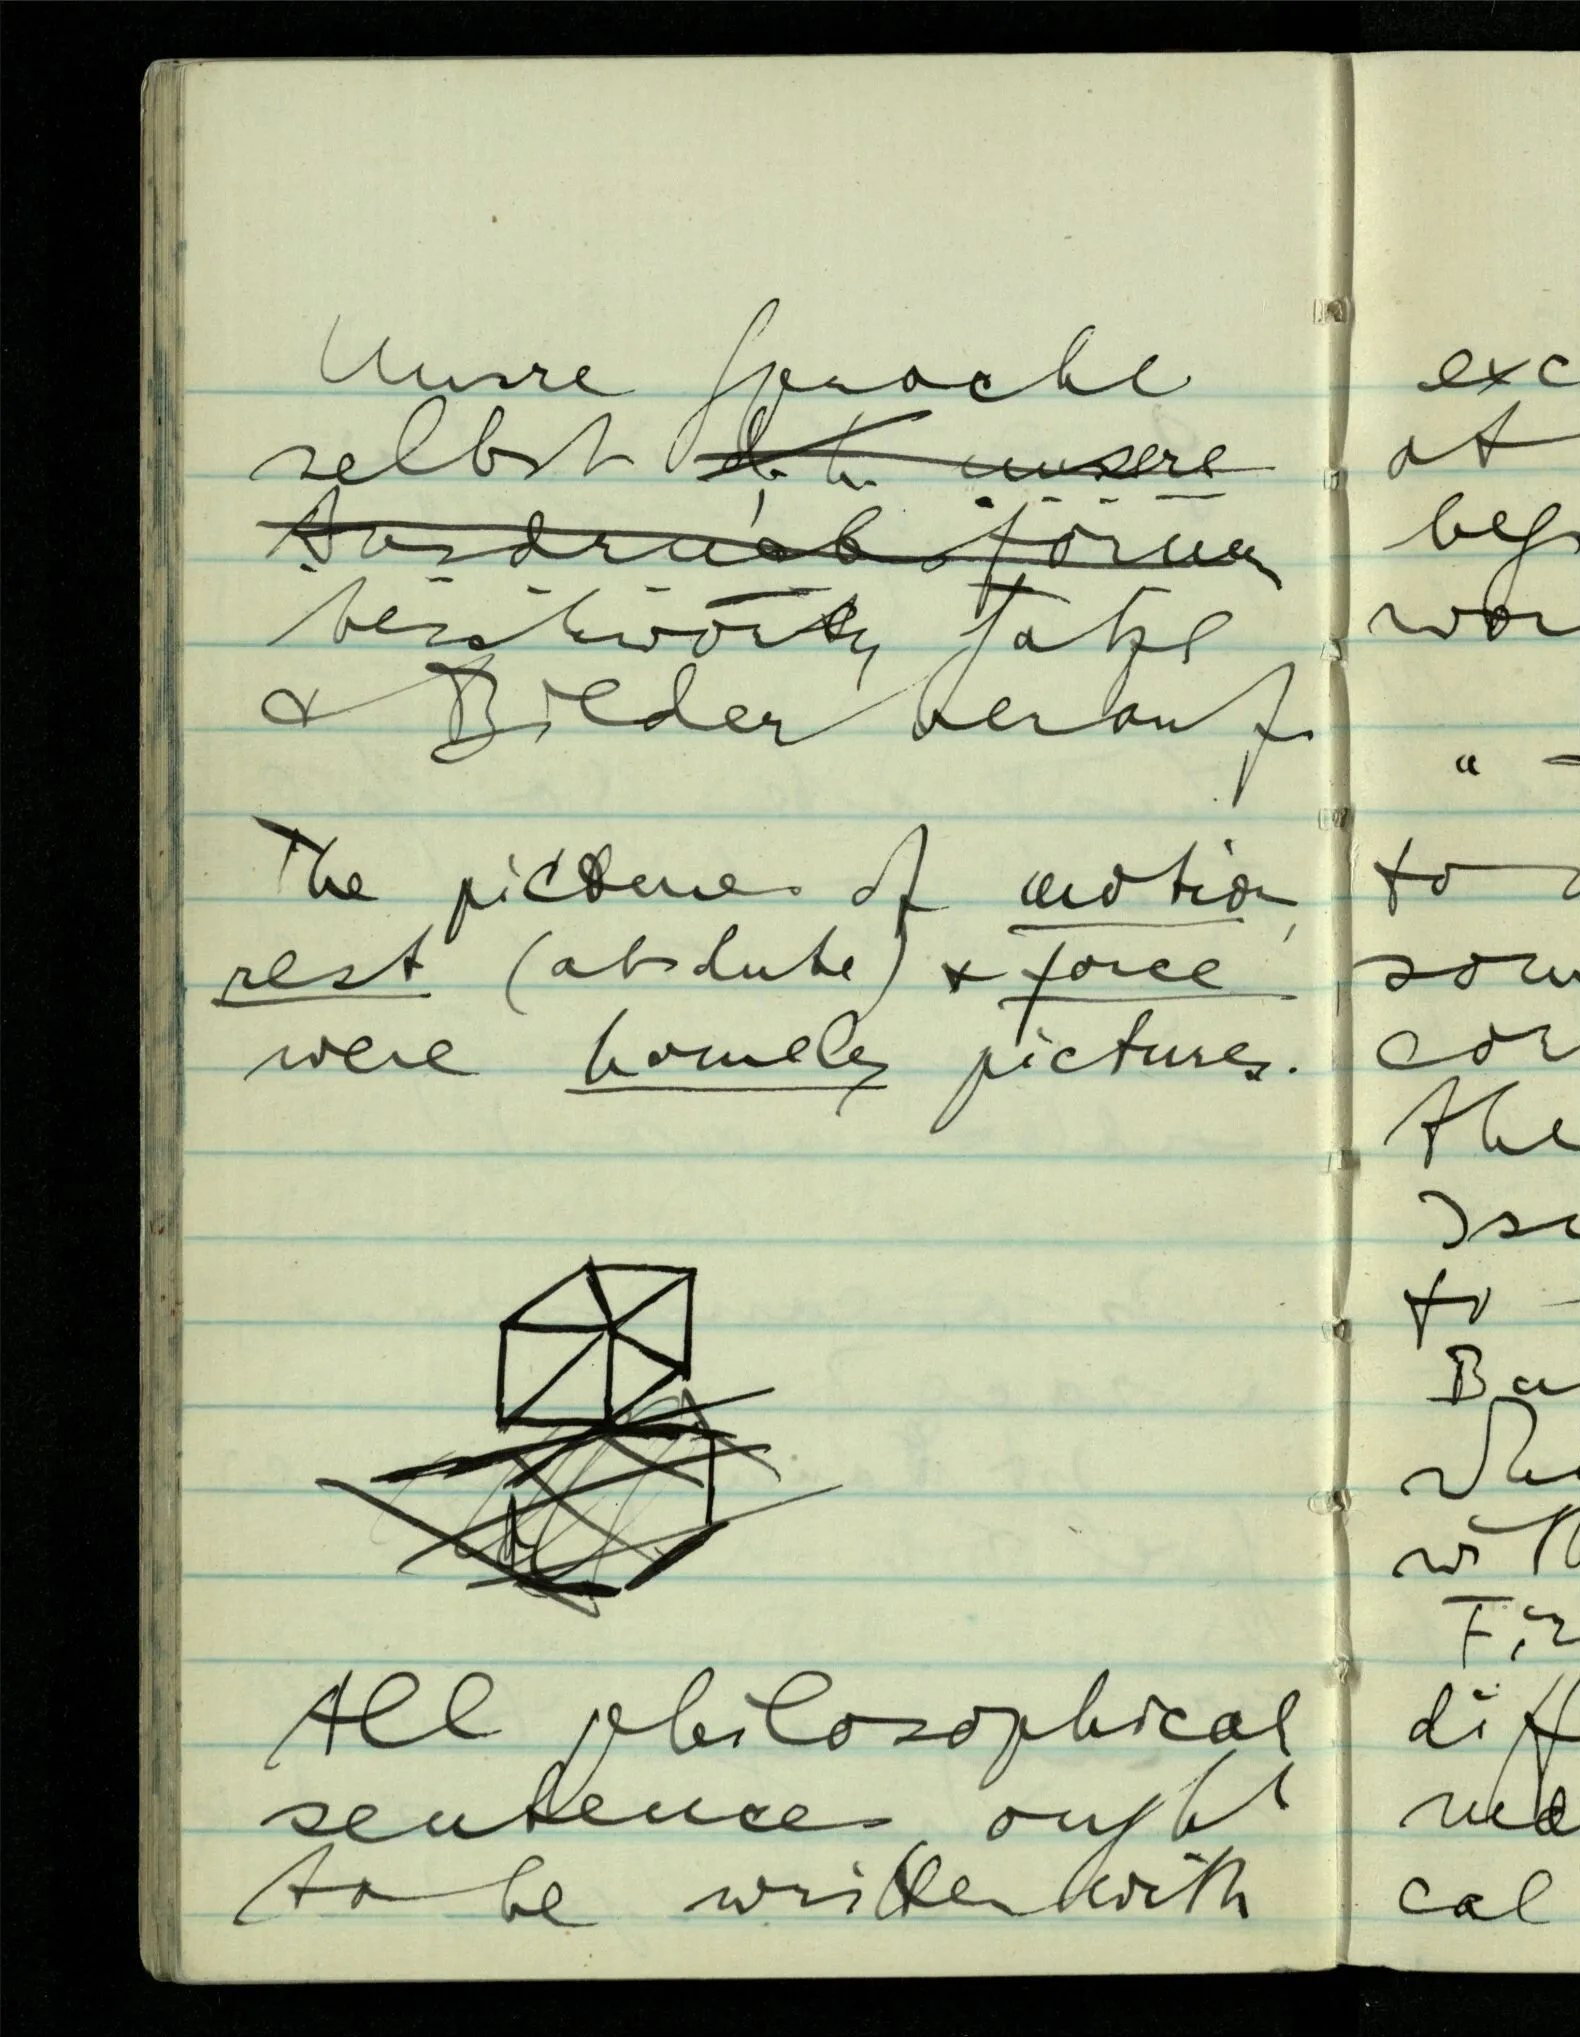 Unsre Sprache
selbst d.h. unsere
Ausdrucksformen
beschwört
& Bilder herauf.
The pictures of motion,
rest (absolute) & force
were homely pictures.
All philosophical
sentences ought
to be written with
exc
at
beg
wor
"
to
som
cor
the
to
Ba
diff
cal